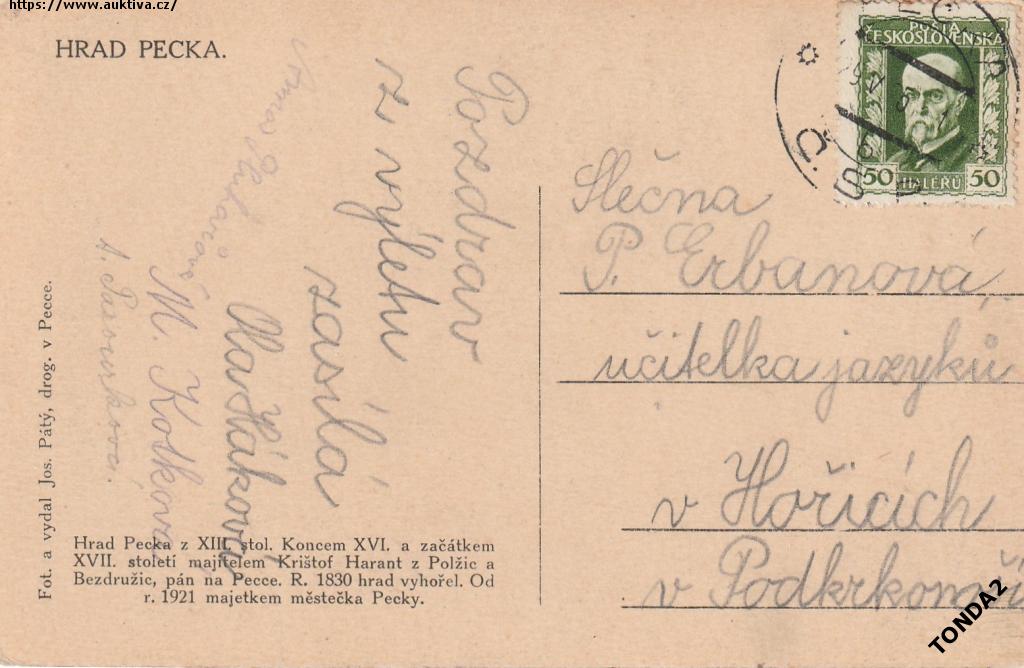 https://www.auktiva.cz/
HRAD PECKA.
Pozdrav
z výletu
zasílá
Ola Háková
M. Kotková
A.
Slečna
P. Erbanová,
učitelka jazyků
v Hořicích
v Podkrkonoší
POŠTA
ČESKOSLOVENSKÁ
50 HALÉŘŮ 50
Fot. a vydal Jos. Pátý, drog. v Pecce.
Hrad Pecka z XIII. stol. Koncem XVI. a začátkem
XVII. století majitelem Krištof Harant z Polžic a
Bezdružic, pán na Pecce. R. 1830 hrad vyhořel. Od
r. 1921 majetkem městečka Pecky.
TONDA2